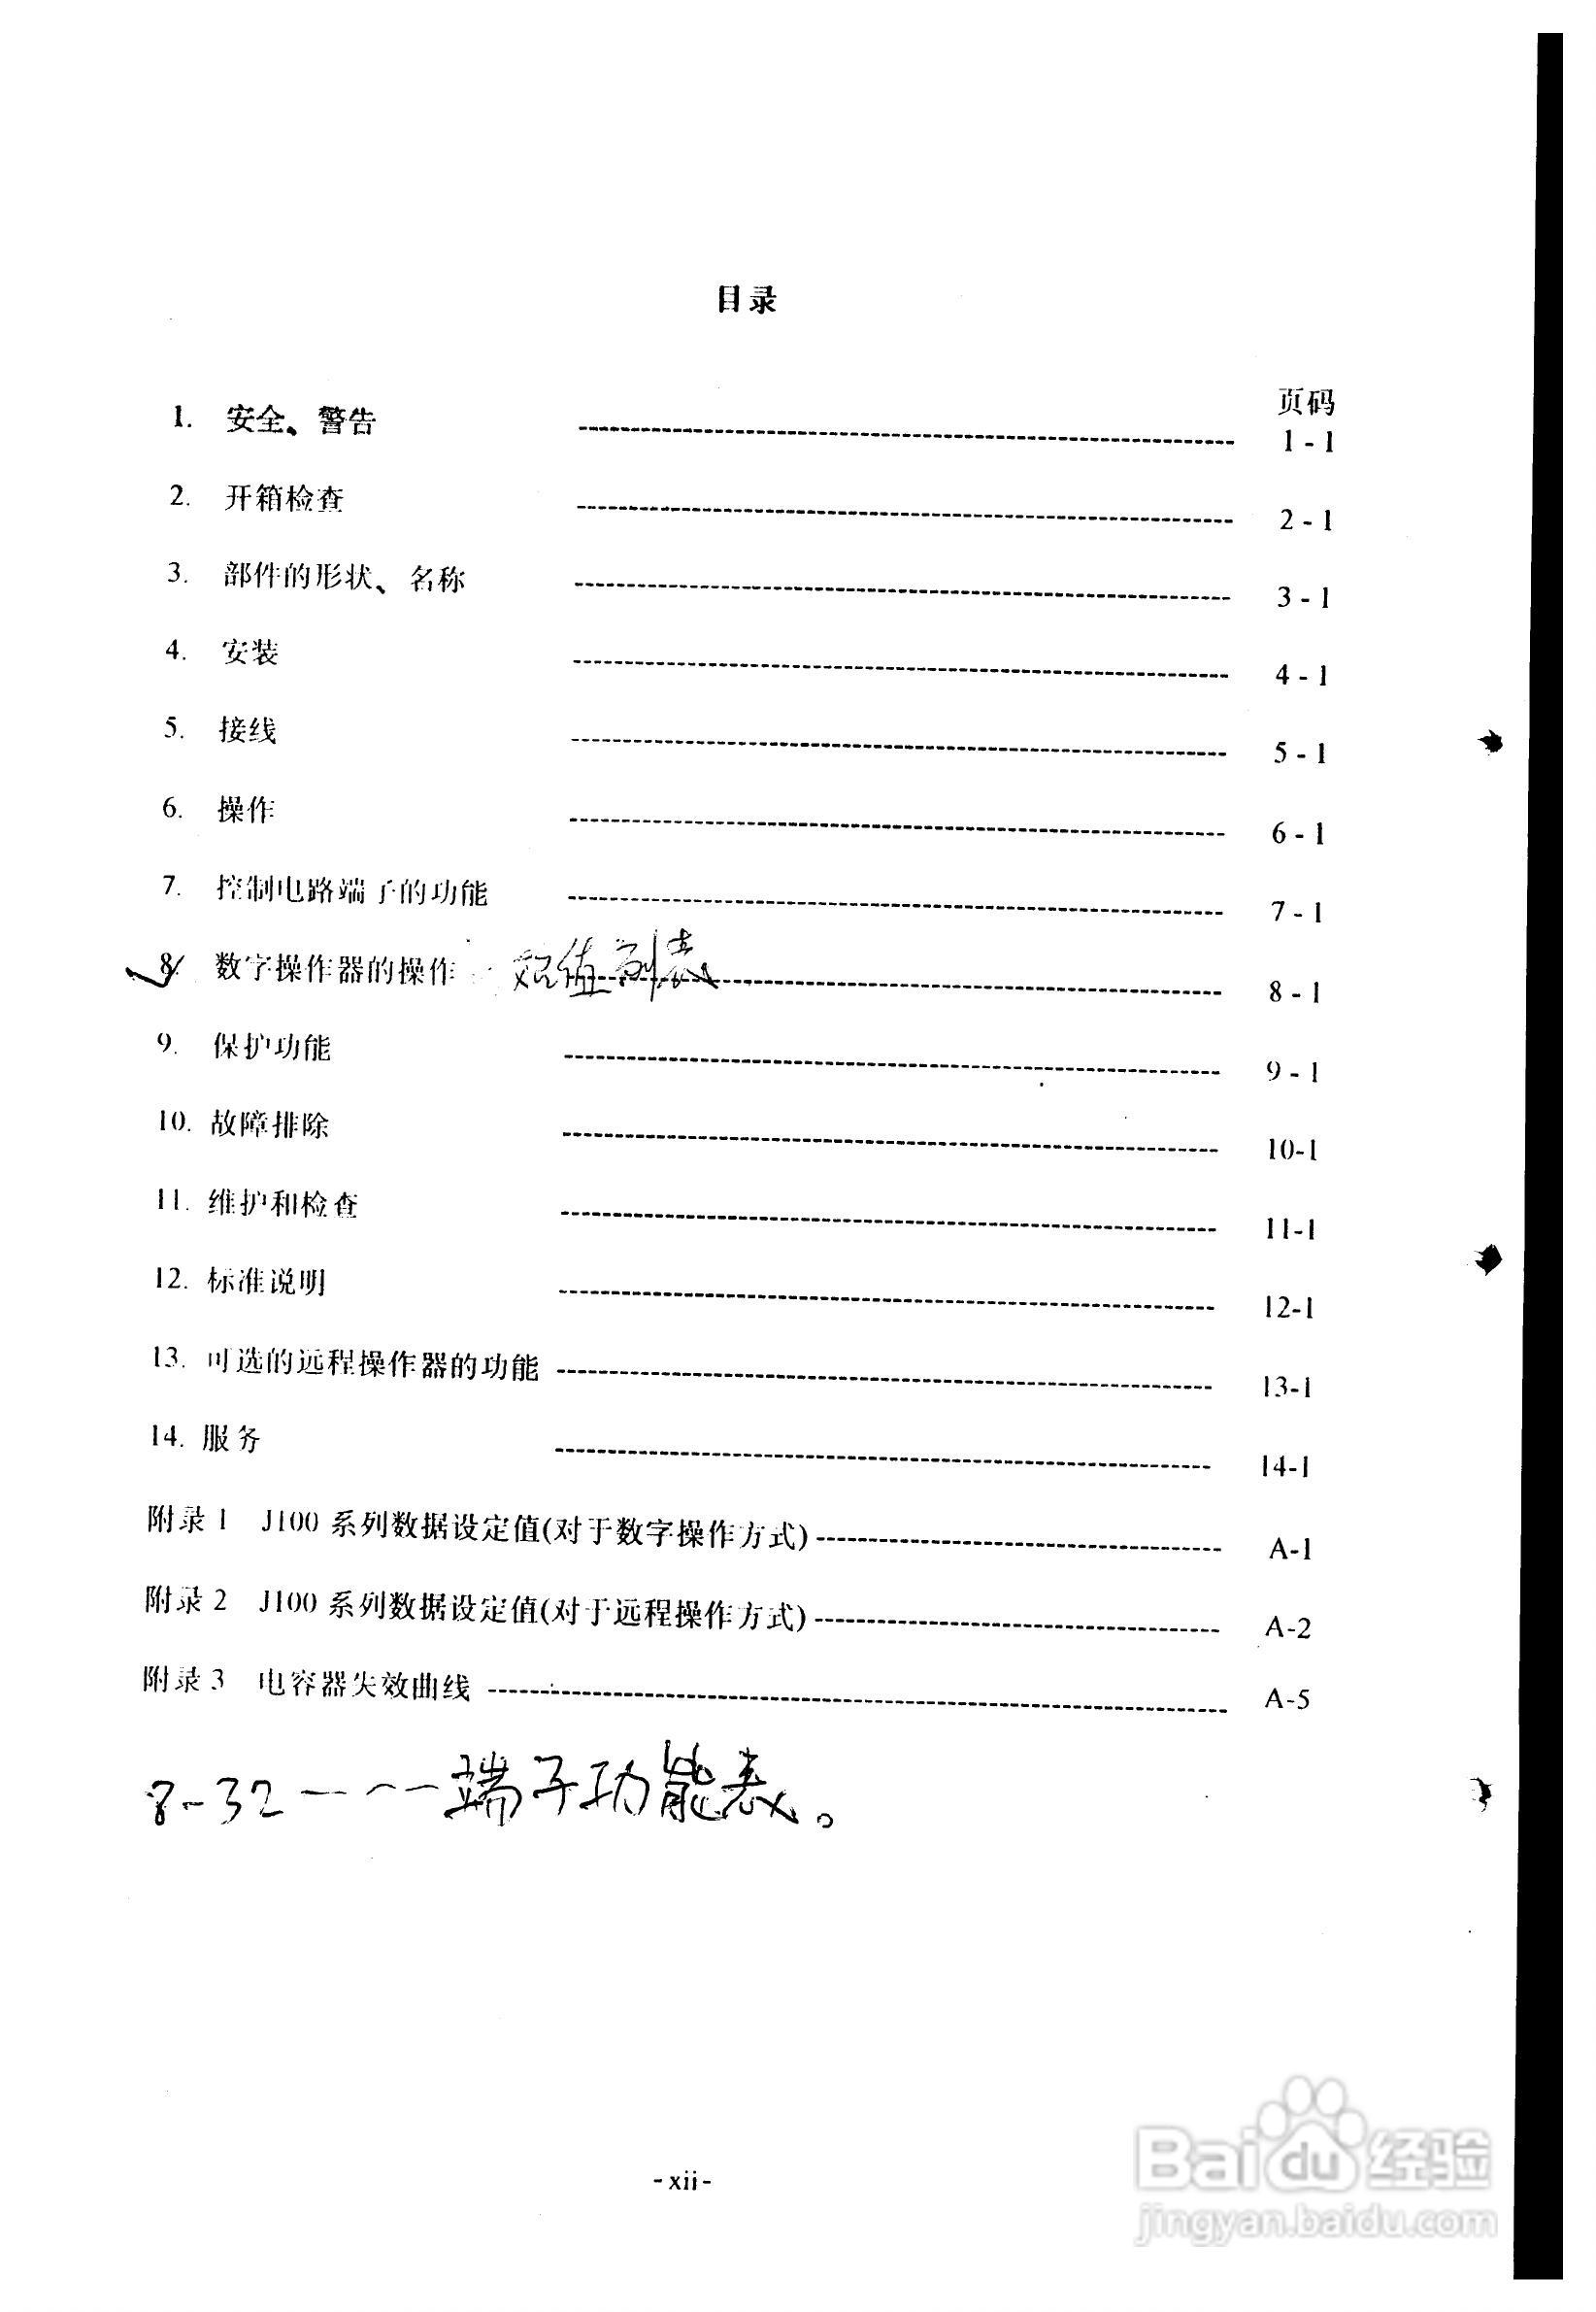 目录
页码
1. 安全、警告 1-1
2. 开箱检查 2-1
3. 部件的形状、名称 3-1
4. 安装 4-1
5. 接线 5-1
6. 操作 6-1
7. 控制电路端子的功能 7-1
8. 数字操作器的操作 值列表 8-1
9. 保护功能 9-1
10. 故障排除 10-1
11. 维护和检查 11-1
12. 标准说明 12-1
13. 可选的远程操作器的功能 13-1
14. 服务 14-1
附录1 J100 系列数据设定值(对于数字操作方式) A-1
附录2 J100 系列数据设定值(对于远程操作方式) A-2
附录3 电容器失效曲线 A-5
8-32----端子功能表。
-xii-
Baidu经验
jingyan.baidu.com